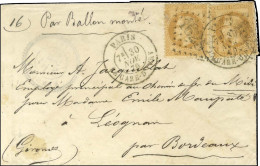 16) Par Ballon monté
PARIS
30
NOV.
Monsieur A.
Employé principal au chemin de fer du Midi
pour Madame Emile Maupas
à Léognan
par Bordeaux
(Gironde)